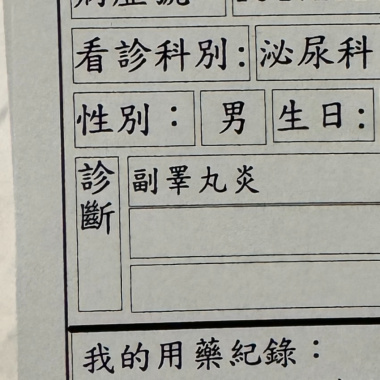 看診科別: 泌尿科
性別： 男 生日:
診斷 副睪丸炎
我的用藥紀錄：